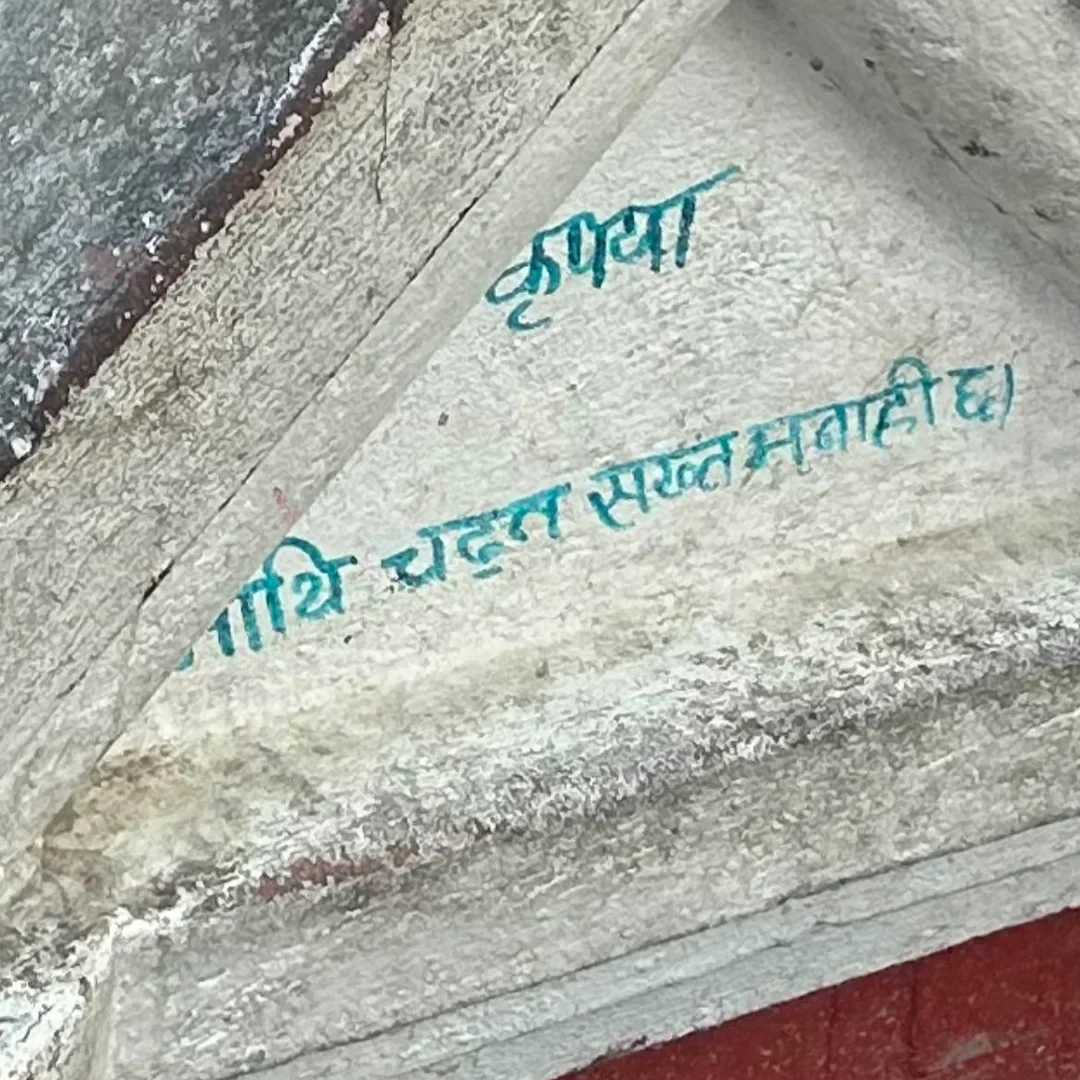 कृपया
माथि चढ्न सख्त मनाही छ।